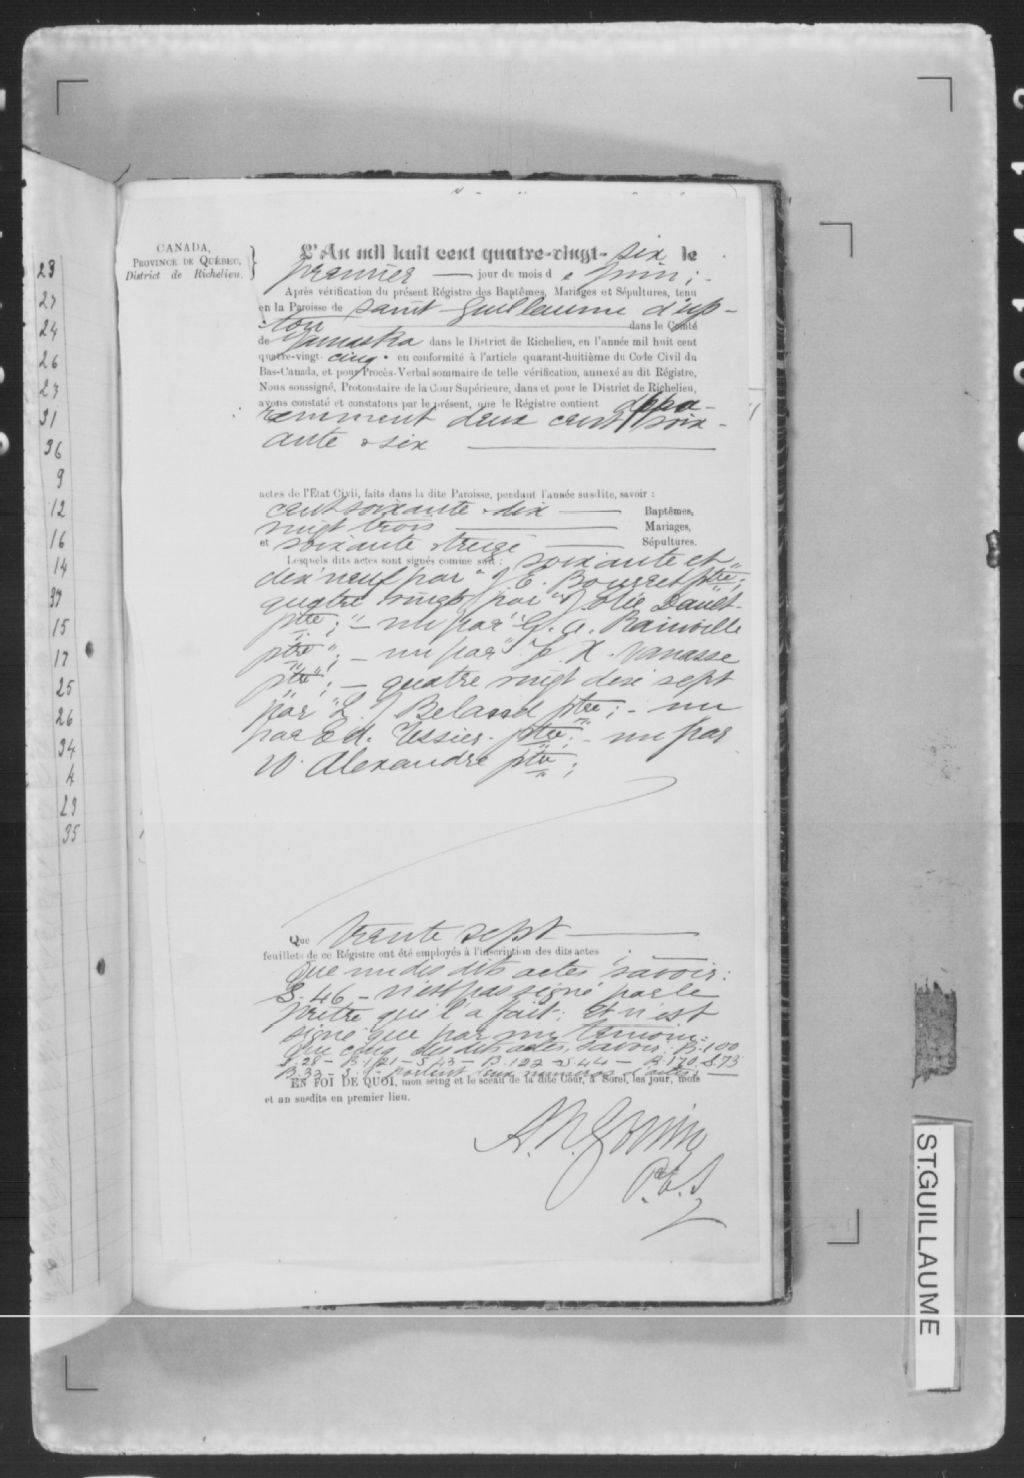 CANADA,
PROVINCE DE QUÉBEC,
District de Richelieu.
L'An mil huit cent quatre-vingt- six le
premier jour du mois de Juin;
Après vérification du présent Régistre des Baptêmes, Mariages et Sépultures, tenu
en la Paroisse de saint Guillaume d'up-
ton dans le Comté
de Yamaska dans le District de Richelieu, en l'année mil huit cent
quatre-vingt- cinq en conformité à l'article quarant-huitième du Code Civil du
Bas-Canada, et pour Procès-Verbal sommaire de telle vérification, annexé au dit Régistre,
Nous soussigné, Protonotaire de la Cour Supérieure, dans et pour le District de Richelieu,
avons constaté et constatons par le présent, que le Régistre contient
deux cent soix-
ante & six
actes de l'Etat Civil, faits dans la dite Paroisse, pendant l'année susdite, savoir :
cent soixante & dix Baptêmes,
vingt trois Mariages,
et soixante & treize Sépultures.
Lesquels dits actes sont signés comme suit : soixante et
dix neuf par "J. E. Bourret ptre";
quatre vingt par "Jolie Danet-
ptre"; - un par "G. A. Rainville
ptre"; - un par "F. X. Vanasse
ptre"; - quatre vingt dix sept
par "L. J Belard ptre; - un
par Ed. Tessier. ptre; - un par
W. Alexandre ptre;
Que trente sept
feuillets de ce Régistre ont été employés à l'inscription des dits actes;
Que un des dits actes savoir:
S. 46 - n'est pas signé par le
prêtre qui l'a fait; Et n'est
signé que par un témoin.
Que cinq des dits actes, savoir: B. 100
S. 28 - B. 121 - S 43 - B. 122 - S 44 - B. 170 - S 73
B. 33 - S. 9 - portent deux numéros d'actes;
EN FOI DE QUOI, mon seing et le sceau de la dite Cour, à Sorel, les jour, mois
et an susdits en premier lieu.
A. N. Gouin
P. C. S
23
27
24
26
27
31
36
9
12
16
14
37
15
17
25
26
34
4
23
35
ST.GUILLAUME